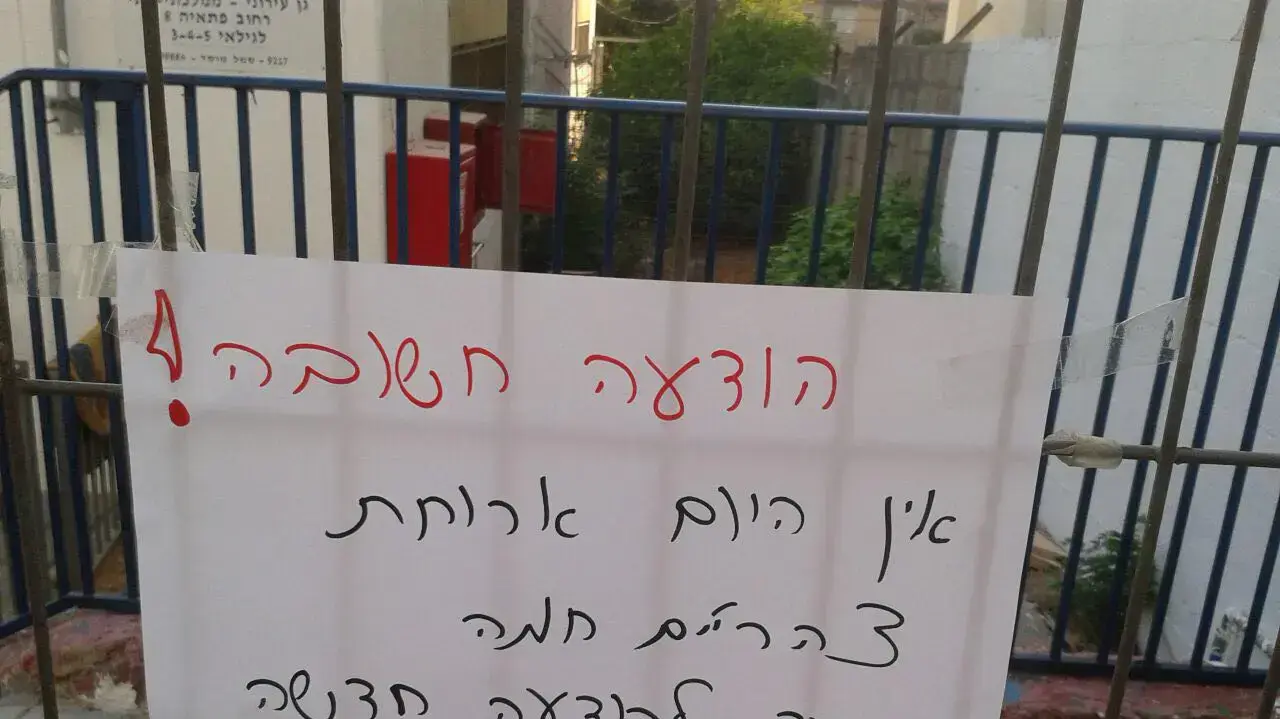 גן עירוני -
רחוב פתאיה 8
לגילאי 3-4-5
סמל מוסד - 9227
הודעה חשובה!
אין היום ארוחת
צהריים חמה
להודעה חדשה